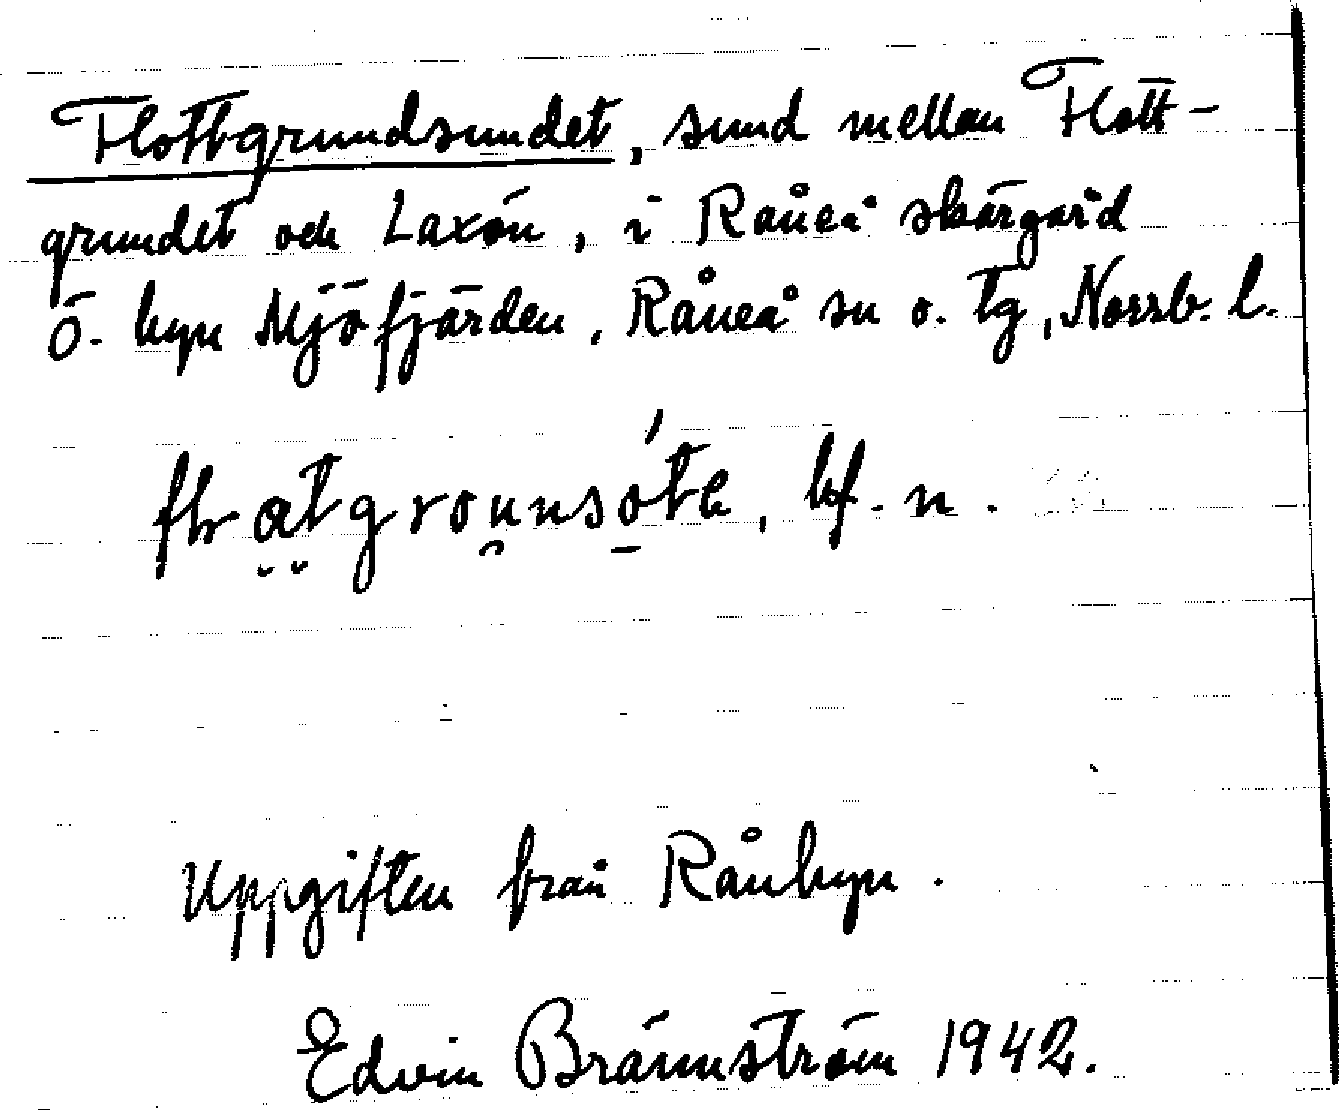 Flottgrundsundet, sund mellan Flott-
grundet och Laxön, i Råneå skärgård
Ö. byn Mjöfjärden, Råneå sn o. tg, Norrb. l.
bf. n.
Uppgiften från Rånbyn.
Edvin Brännström 1942.